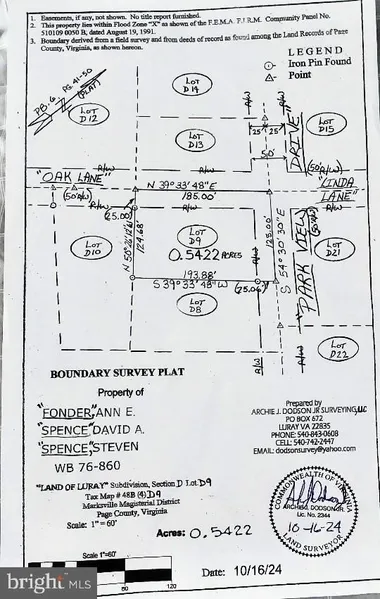 1. Easements, if any, not shown. No title report furnished.
2. This property lies within Flood Zone "X" as shown of the F.E.M.A. F.I.R.M. Community Panel No.
510109 0050 B, dated August 19, 1991.
3. Boundary derived from a field survey and from deeds of record as found among the Land Records of Page
County, Virginia, as shown hereon.
LEGEND
Iron Pin Found
Point
DB. 6 PG 41-50
(PLAT)
LOT
D 12
LOT
D 14
LOT
D 13
LOT
D 15
R/W
R/W
25'
25'
50'
DRIVE"
"OAK LANE"
R/W
(50' R/W)
R/W
"LINDA
LANE"
(50' R/W)
N 39°33'48"E
185.00'
25.00'
LOT
D10
124.68'
LOT
D9
0.5422 ACRES
125.00'
R/W
S 54°30'30"E
"PARK VIEW
LOT
D21
193.88'
S 39°33'48"W
(25.04')
LOT
D8
R/W
R/W
LOT
D22
BOUNDARY SURVEY PLAT
Property of
"FONDER," ANN E.
"SPENCE," DAVID A.
"SPENCE," STEVEN
WB 76-860
Prepared by
ARCHIE J. DODSON JR SURVEYING, LLC
PO BOX 672
LURAY VA 22835
PHONE: 540-843-0608
CELL: 540-742-2447
EMAIL: dodsonsurvey@yahoo.com
"LAND OF LURAY" Subdivision, Section D Lot D9
Tax Map # 48B (4) D9
Marksville Magisterial District
Page County, Virginia
Scale: 1" = 60'
Acres: 0.5422
COMMONWEALTH OF VIRGINIA
ARCHIE J. DODSON
Lic. No. 2344
10-16-24
LAND SURVEYOR
Scale 1"=60'
Date: 10/16/24
60
120
bright MLS